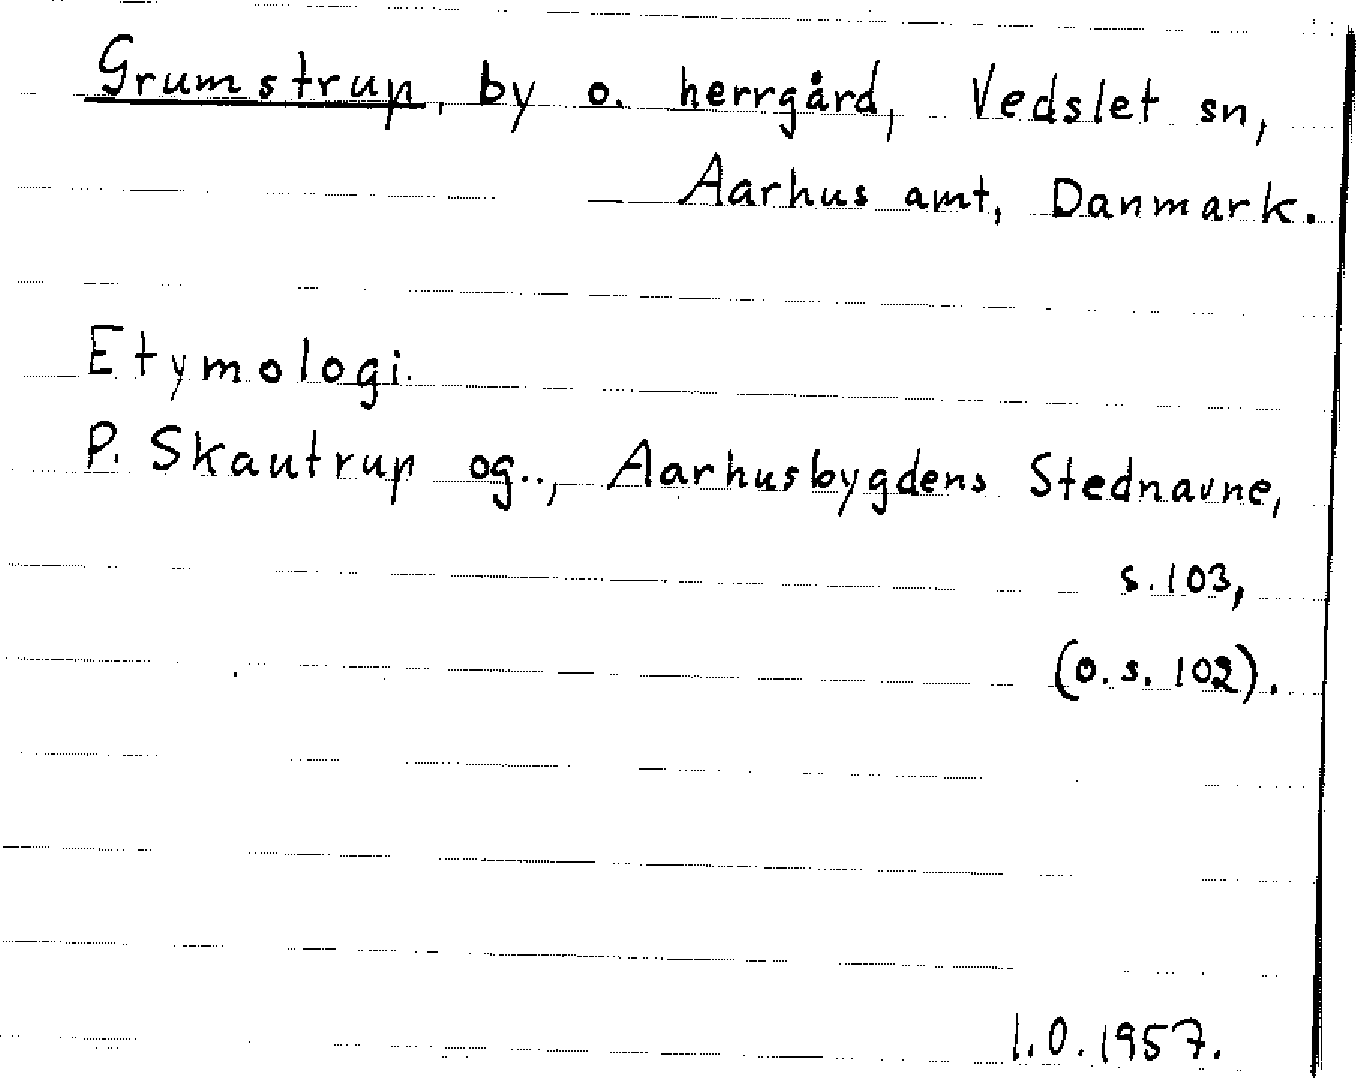 Grumstrup, by o. herrgård, Vedslet sn,
Aarhus amt, Danmark.
Etymologi.
P. Skautrup og.., Aarhusbygdens Stednavne,
s. 103,
(o. s. 102).
I.O. 1957.